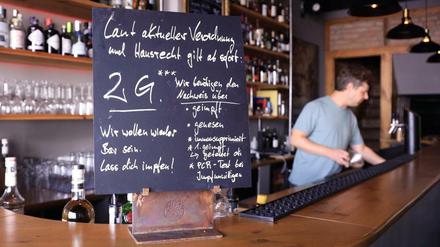 Laut aktueller Verordnung
und Hausrecht gilt ab sofort:
2G. ***
Wir benötigen den
Nachweis über
• geimpft
• genesen
Wir wollen wieder
Bar sein.
Lass dich impfen!
* 1. geimpft
* PCR-Test bei